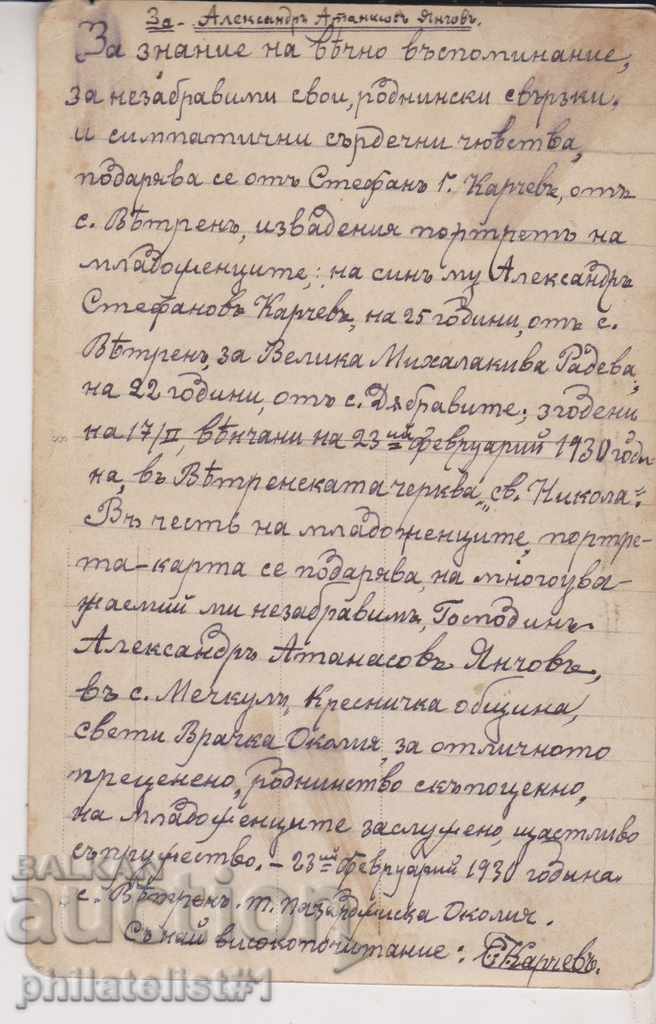 За - Александръ Атанасовъ Янчовъ.
За знание на вѣчно въспоминание,
за незабравими свои, роднински свързки.
и симпатични сърдечни чювства,
подарява се отъ Стефанъ Г. Карчевъ, отъ
с. Вѣтренъ, извадения портретъ на
младоженците,: на синъ му Александръ
Стефановъ Карчевъ, на 25 години, отъ с.
Вѣтренъ, за Велика Михалакива Радева,
на 22 години, отъ с. Дѫбравите; згодени
на 17/II, вѣнчани на 23ий февруарий 1930 годи-
на, въ Вѣтренската черква „св. Никола“.
Въ честь на младоженците, портре-
та-карта се подарява, на многоува-
жаемий ми незабравимъ, Господинъ
Александръ Атанасовъ Янчовъ,
въ с. Мечкулъ, Кресничка община,
свети Врачка Околия, за отличното
преценено, роднинство скъпоценно,
на младоженците заслужено, щастливо
съпружество. – 23ий февруарий 1930 година.
с. Вѣтренъ. т. пазарджиска Околия.
Съ най високопочитание: С Карчевъ.
BALKAN
auction
philatelist#1